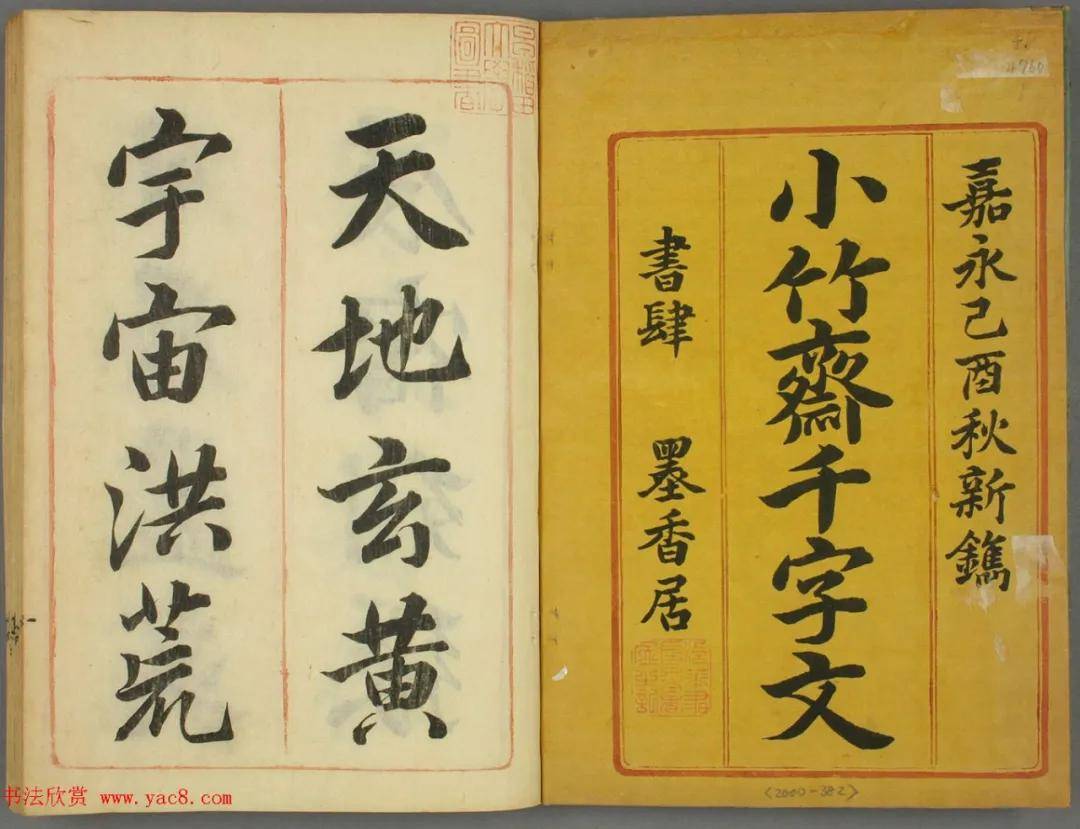 嘉永己酉秋新鐫
小竹齋千字文
書肆 墨香居
天地玄黃
宇宙洪荒
4760
<2000-382>
书法欣赏 www.yac8.com